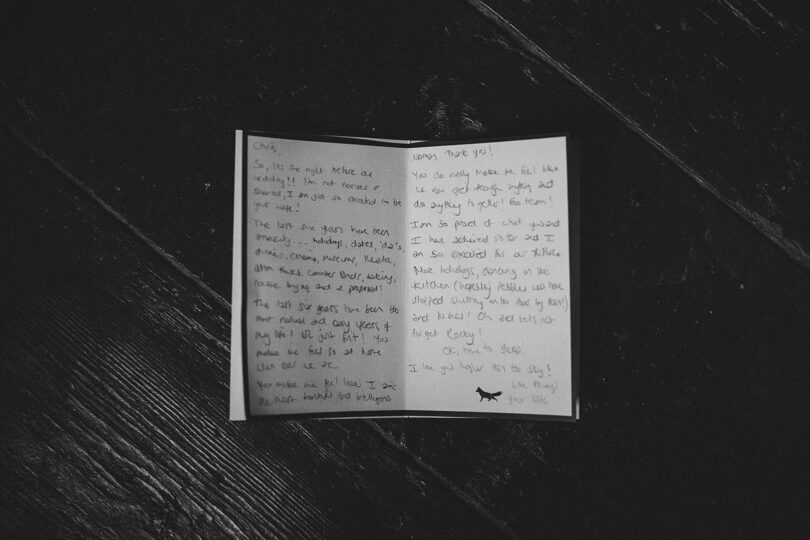 Chris,
So, its the night before our
wedding!! I'm not nervous or
scared, I am just so excited to be
your wife!
The last six years have been
amazing... holidays, dates,
dinners, cinema, museums, theatre,
baking,
house buying and a proposal!
The last six years have been the
most natural and easy years of
my life! We just fit! You
make me feel so at home
we are.
You make me feel like I am
the most beautiful and intelligent
woman. Thank you!
You do really make me feel like
we can get through anything and
do anything together! Go team!
I am so proud of what you and
I have achieved so far and I
am so excited for our future.
More holidays, dancing in the
kitchen (hopefully Pebbles will have
stopped shutting us in there by then!)
and babies! Oh and lets not
forget Rocky!
Ok, time to sleep.
I love you higher than the sky!
Love
Your wife